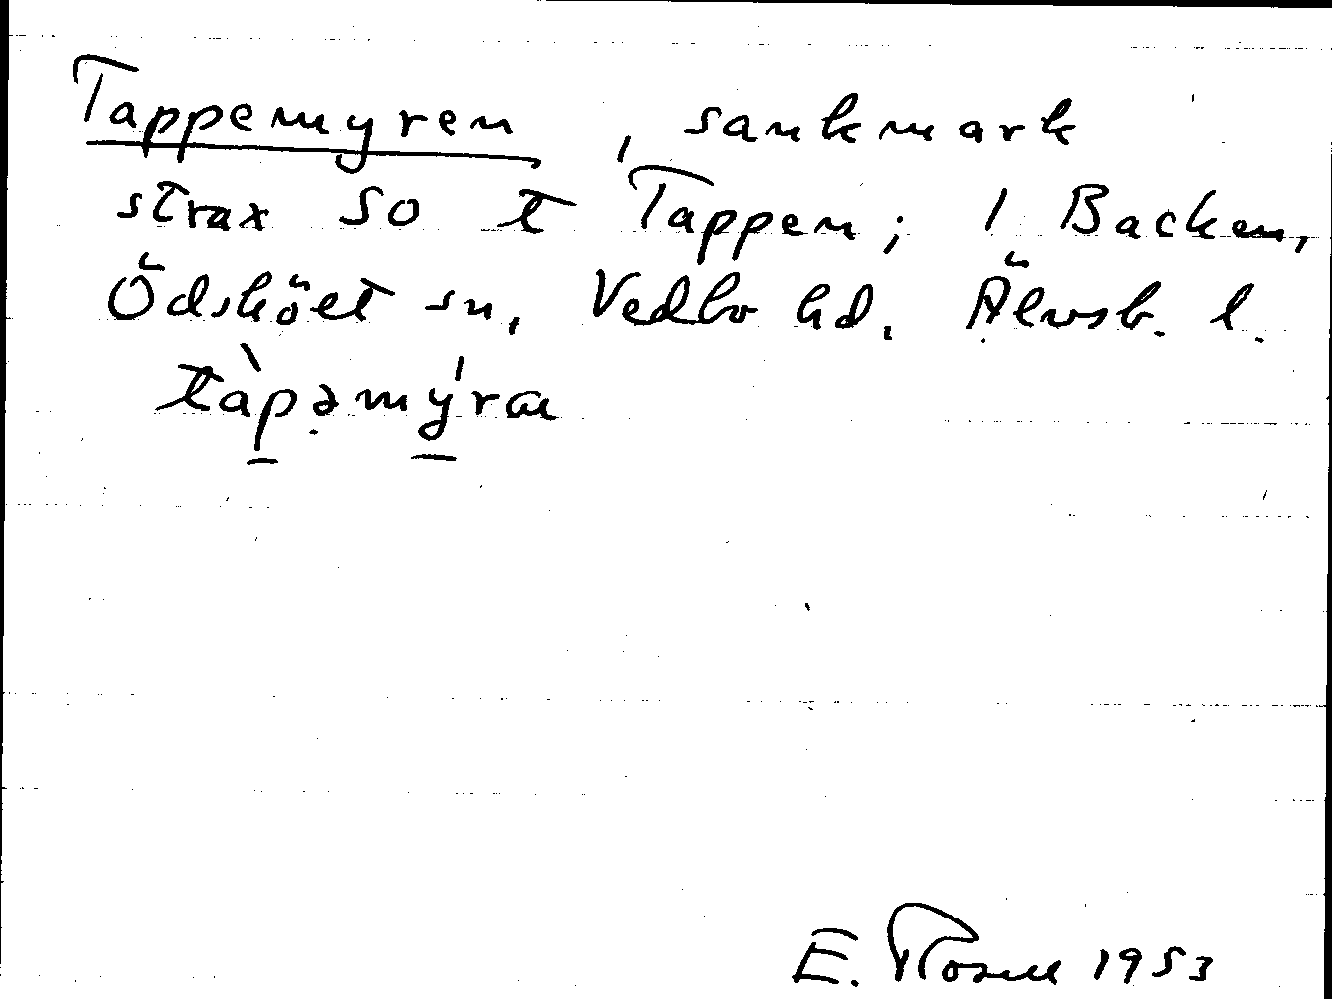 Tappemyren, sankmark
strax SO t Tappen; 1 Backen,
Ödsköelt sn, Vedbo hd. Älvsb. l.
tàpəmýra
E. 1953